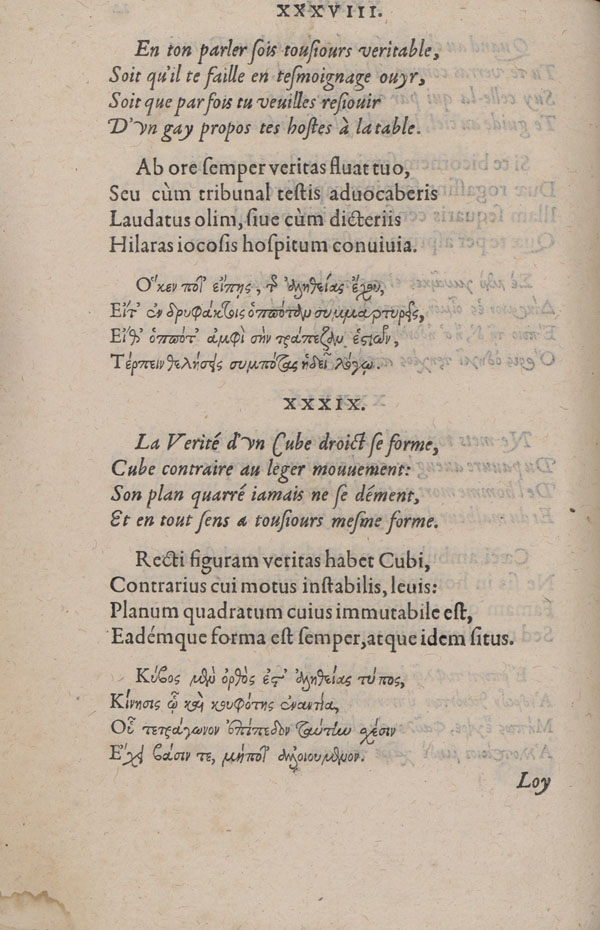 XXXVIII.
En ton parler sois tousiours veritable,
Soit qu'il te faille en tesmoignage ouyr,
Soit que par fois tu veuilles resiouir
D'vn gay propos tes hostes à la table.
Ab ore semper veritas fluat tuo,
Seu cùm tribunal testis aduocaberis
Laudatus olim, siue cùm dicteriis
Hilaras iocosis hospitum conuiuia.
εἴπῃς, ἀληθείας ἔχου,
Εἴτ' ἐν δρυφάκτοις ὁπόταν συμμαρτυρῇς,
Εἴθ' ὁπότ' ἀμφὶ σὴν τράπεζαν ἑστιῶν,
Τέρπειν θελήσῃς συμπότας ἡδεῖ λόγῳ.
XXXIX.
La Verité d'vn Cube droict se forme,
Cube contraire au leger mouuement:
Son plan quarré iamais ne se dément,
Et en tout sens a tousiours mesme forme.
Recti figuram veritas habet Cubi,
Contrarius cui motus instabilis, leuis:
Planum quadratum cuius immutabile est,
Eadémque forma est semper, atque idem situs.
Κύβος μὲν ὀρθὸς ἐστ' ἀληθείας τύπος,
Κίνησις ᾧ καὶ κουφότης ἐναντία,
Οὗ τετράγωνον ἐπίπεδον ταύτην σχέσιν
Ἔχει βάσιν τε, μήποτ' ἀλλοιουμένον.
Loy